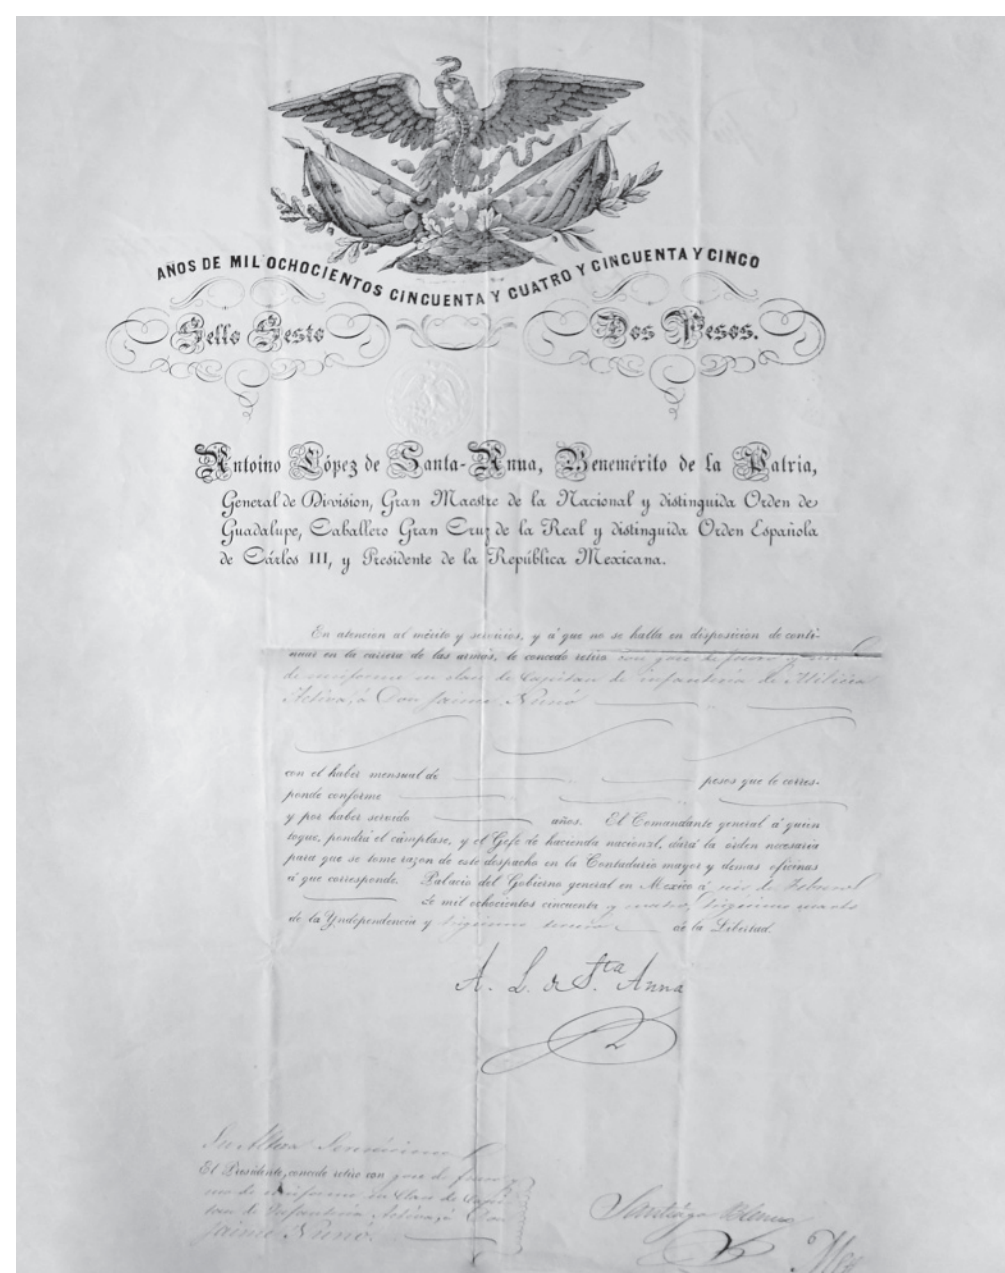 AÑOS DE MIL OCHOCIENTOS CINCUENTA Y CUATRO Y CINCUENTA Y CINCO
Sello Sesto Dos Pesos.
Antoino López de Santa-Anna, Benemérito de la Patria,
General de Division, Gran Maestre de la Nacional y distinguida Orden de
Guadalupe, Caballero Gran Cruz de la Real y distinguida Orden Española
de Cárlos III, y Presidente de la República Mexicana.
En atencion al mérito y servicios, y á que no se halla en disposicion de conti-
nuar en la carrera de las armas, le concedo retiro con goce de fuero y uso
de uniforme en clase de Capitan de infantería de Milicia
Activa, á Don Jaime Nunó
con el haber mensual de pesos que le corres-
ponde conforme
y por haber servido años. El Comandante general á quien
toque, pondrá el cúmplase, y el Gefe de hacienda nacional, dará la órden necesaria
para que se tome razon de este despacho en la Contaduría mayor y demas oficinas
á que corresponde. Palacio del Gobierno general en México á seis de
de mil ochocientos cincuenta y cuatro, trigésimo cuarto
de la Yndependencia y trigésimo tercero de la Libertad.
A. L. de Sta. Anna
Su Alteza Serenísima
El Presidente, concede retiro con goce de fuero y
uso de uniforme en clase de Capi-
tan de Infantería Activa, á Don
Jaime Nunó.
Santiago Blanco